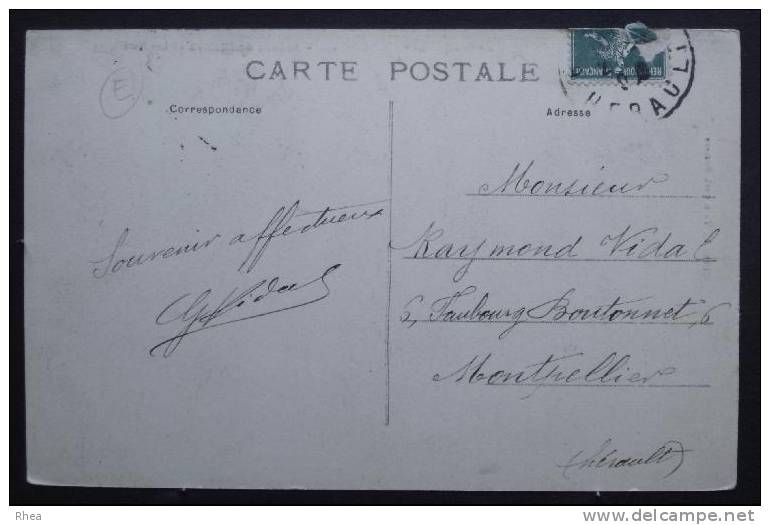 CARTE POSTALE
E
Correspondance
Adresse
HERAULT
Souvenir affectueux
G Vidal
Monsieur
Raymond Vidal
6, Faubourg Boutonnet, 6
Montpellier
(hérault)
Rhea
www.delcampe.net